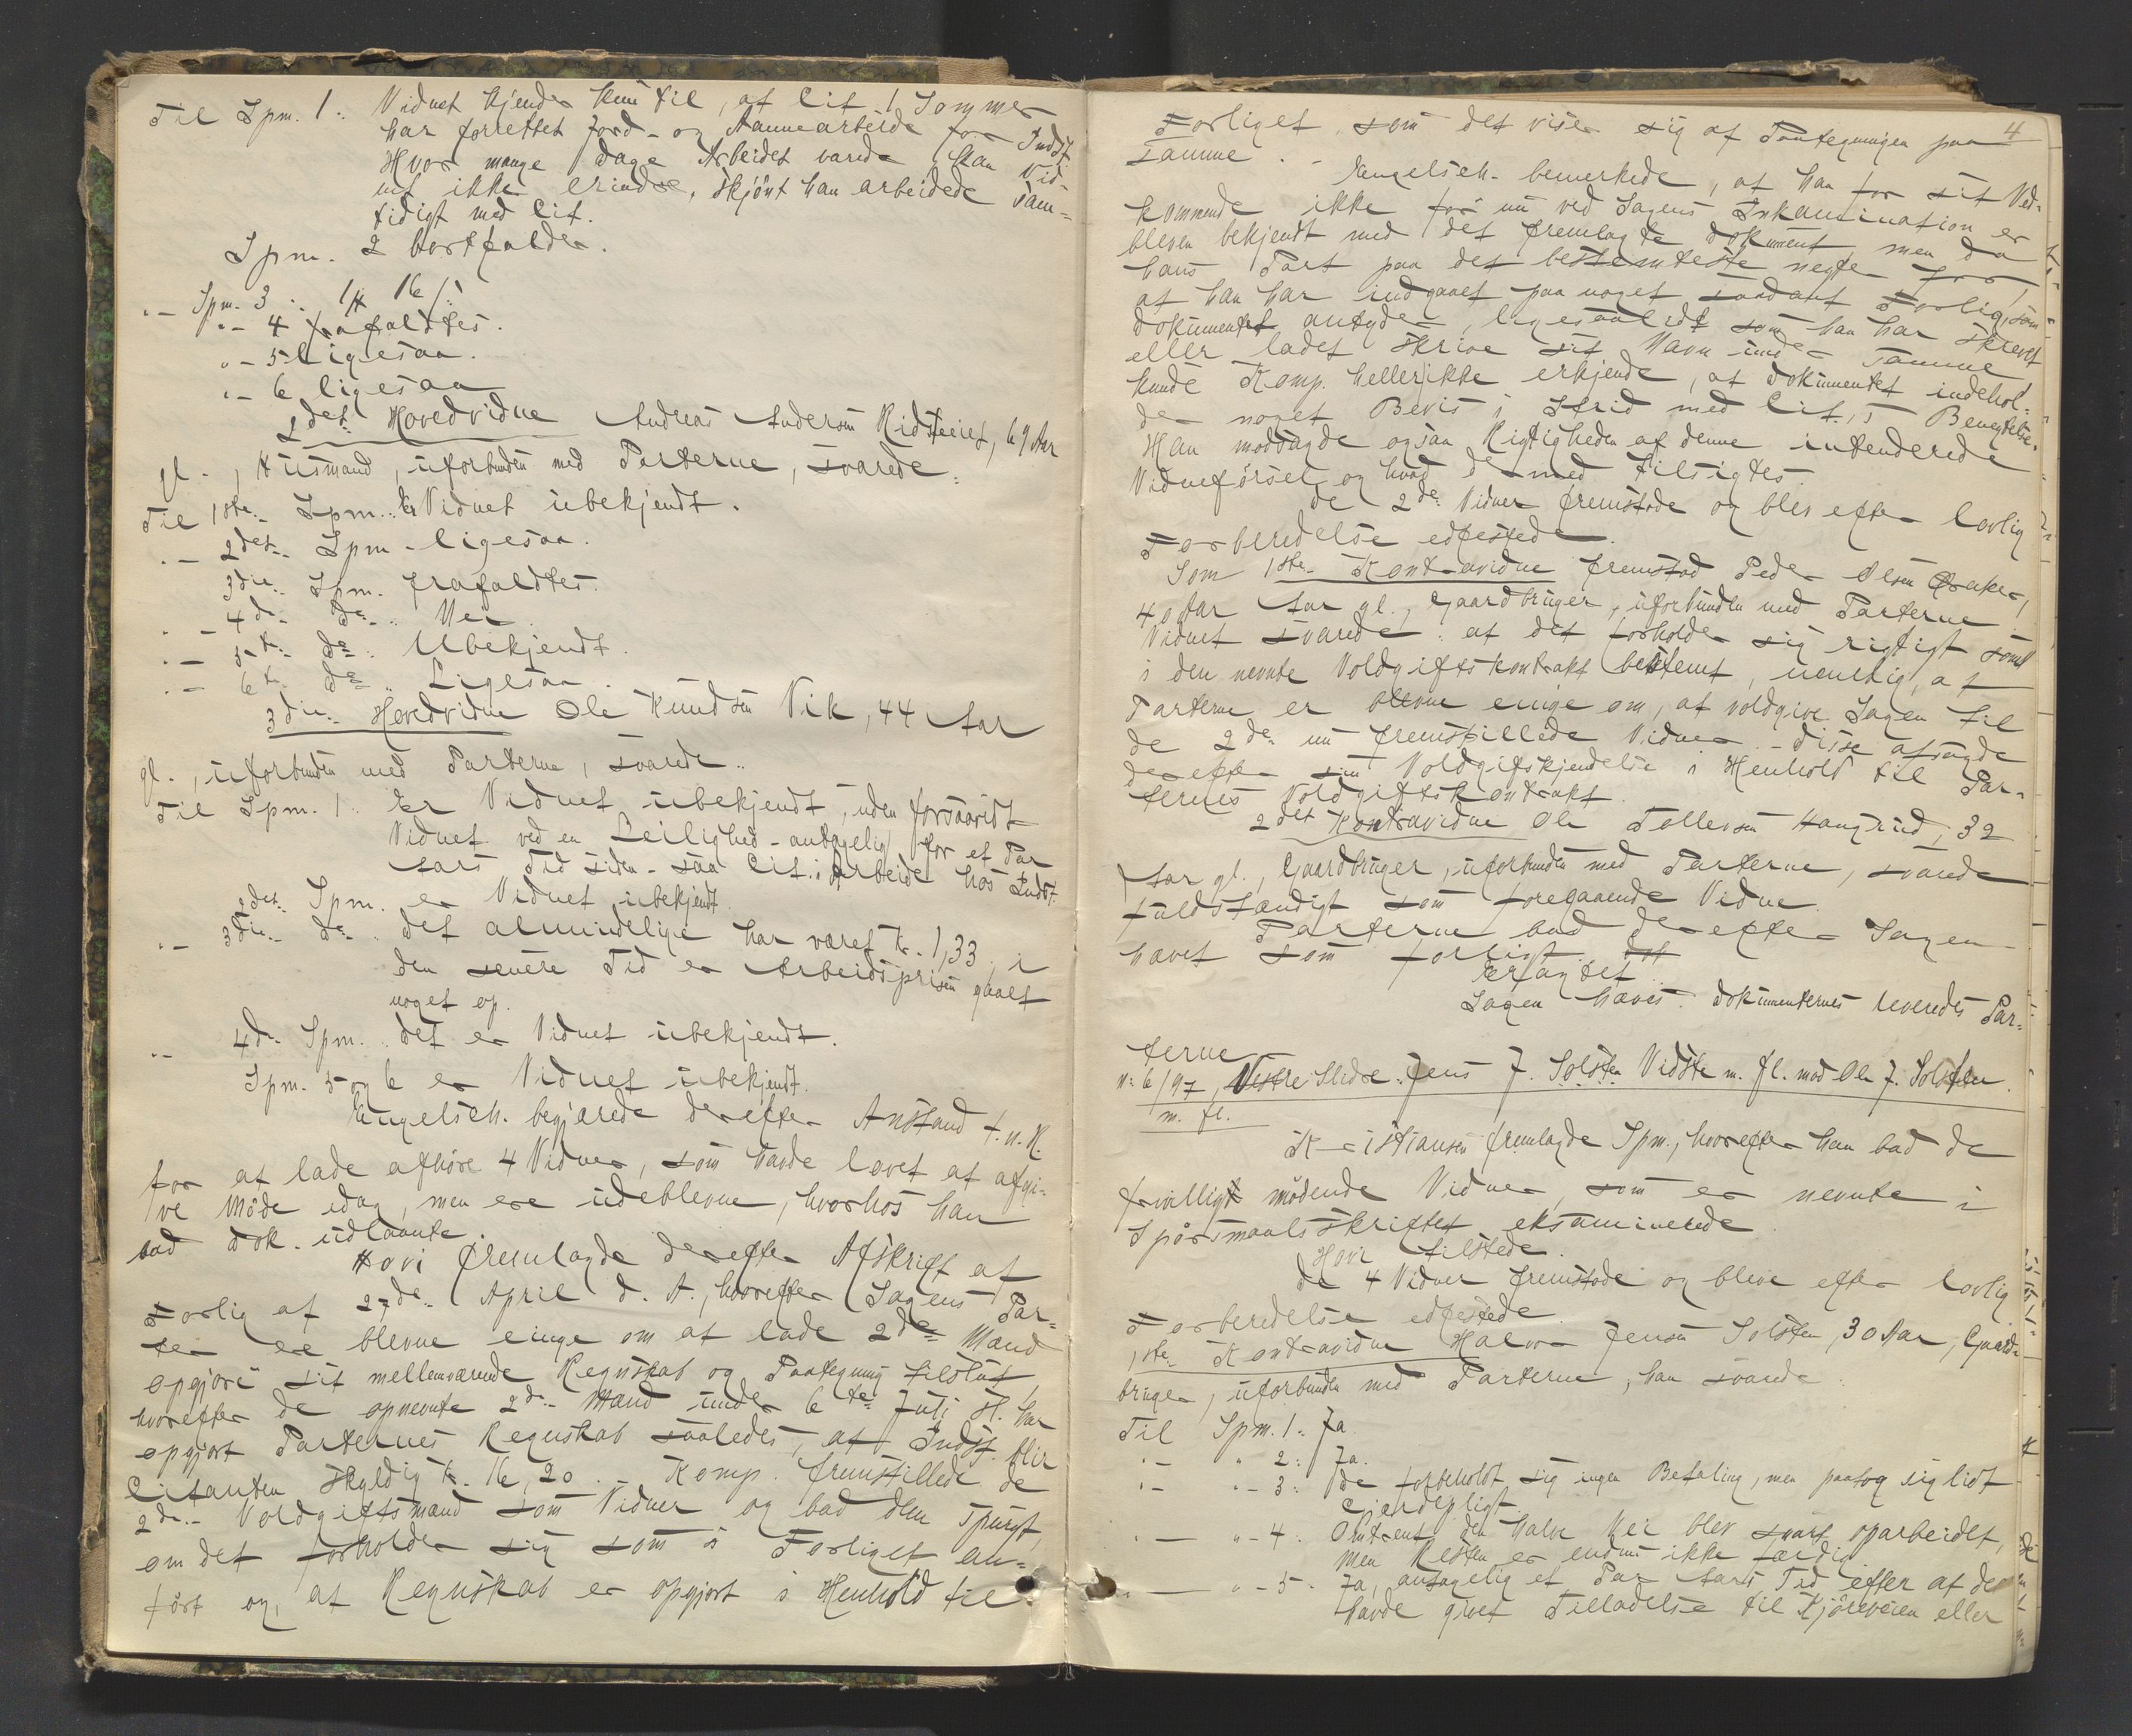 Til Spm. 1: Vidnet kjender kun til, at Cit. 1 Sommer
har forrettet Jord- og Aannearbeide for Indst.
Hvor mange Dage Arbeidet varede kan Vid-
net ikke erindre, skjønt han arbeidede sam-
tidigt med Cit.
Spm. 2 bortfalder.
"- Spm. 3:
"- 4 frafaldtes.
"- 5 Ligesaa.
"- 6 ligesaa
2det Hovedvidne Andreas Andersen 69 Aar
gl., Husmand, uforbunden med Parterne, svarede:
Til 1ste Spm.: Er Vidnet ubekjendt.
"- 2det Spm - ligesaa.
3die Spm. frafaldtes.
"- 4de do. Nei
"- 5te do: Ubekjendt.
"- 6te do " Ligesaa.
3die Hovedvidne Ole Knudsen Vik, 44 Aar
gl., uforbunden med Parterne, svarede:
Til Spm. 1: Er Vidnet ubekjendt, uden forsaavidt
Vidnet ved en Leilighed - antagelig for et Par
Aars Tid siden - saa Cit. i Arbeide hos Indst.
2det Spm. er Vidnet ubekjendt
"- 3die do: det almindelige har været Kr. 1,33, i
den senere Tid er Arbeidsprisen gaaet
noget op.
"- 4de Spm. det er Vidnet ubekjendt.
Spm. 5 og 6 er Vidnet ubekjendt.
Engelsch. begjærede derefter Anstand t. n. R.
for at lade afhøre 4 Vidner, som havde lovet at afgi-
ve Møde idag, men ere udeblevne, hvorhos han
bad Dok. udlaante.
Hovi fremlagde derefter Afskrift af
Forlig af 27de April d. A., hvorefter Sagens Par-
ter ere blevne enige om at lade 2de Mænd
opgjøre sit mellemværende Regnskab og Paategning tilslut
hvorefter de opnevnte 2de Mænd under 6te Juli H. har
opgjort Parternes Regnskab saaledes, at Indst. blir
Citanten skyldig Kr. 16,20. - Komp. fremstillede de
2de Voldgiftsmænd som Vidner og bad dem spurgt,
om det forholder sig som i Forliget an-
ført og, at Regnskab er opgjort i Henhold til
4
Forliget, som det viser sig af Paategningen paa
samme. -
Engelsch. bemerkede, at han for sit Ved-
kommende ikke før nu ved Sagens Inkamination er
bleven bekjendt med det fremlagte Dokument, men da
hans Part paa det bestemteste negter for,
at han har indgaaet paa noget saadant Forlig, som
Dokumentet antyder, ligesaalidt som han har skrevet
eller ladet skrive sit Navn under samme
kunde Komp. heller ikke erkjende, at Dokumentet indehol-
der noget Bevis i Strid med Cit.s Benegtelse.
Han modsagde ogsaa Rigtigheden af denne intenderede
Vidneførsel og hvad dermed tilsigtes.
De 2de Vidner fremstode og blev efter lovlig
Forberedelse edfestede.
Som 1ste Kontravidne fremstod Peder Olsen
40 Aar gl., Gaardbruger, uforbunden med Parterne.
Vidnet svarede: at det forholder sig rigtigt som
i den nevnte Voldgiftskontrakt bestemt, nemlig, at
Parterne er blevne enige om, at voldgive Sagen til
de 2de nu fremstillede Vidner. - Disse afsagde
derefter sin Voldgiftskjendelse i Henhold til Par-
ternes Voldgiftskontrakt.
2det Kontravidne Ole Tollevsen Haugrud, 32
Aar gl., Gaardbruger, uforbunden med Parterne, svarede
fuldstændigt som foregaaende Vidne.
Parterne bad derefter Sagen
hævet som forligt.
Eragtet:
Sagen hæves. Dokumenternes leveredes Par-
terne
No 6/97, Vestre Slidre. Jens J. Solsten Vidste m. fl. mod Ole J. Solsten
m. fl.
Kristiansen fremlagde Spm., hvorefter han bad de
frivilligt mødende Vidner, som er nevnte i
Spørsmaalsskriftet eksaminerede.
Hovi tilstede.
De 4 Vidner fremstode og bleve efter lovlig
Forberedelse edfestede.
1ste Kontravidne Halvor Jensen Solsten, 30 Aar, Gaard-
bruger, uforbunden med Parterne, han svarede:
Til Spm. 1: Ja.
"- " 2: Ja.
"- "- 3: De forbeholdt sig ingen Betaling, men paatog sig lidt
Gjerdepligt.
"- "- 4: Omtrent den halve Vei blev snart oparbeidet,
men Resten er endnu ikke færdig.
"- "- 5: Ja, antagelig et Par Aars Tid efter at de
havde givet Tilladelse til Kjøreveien eller